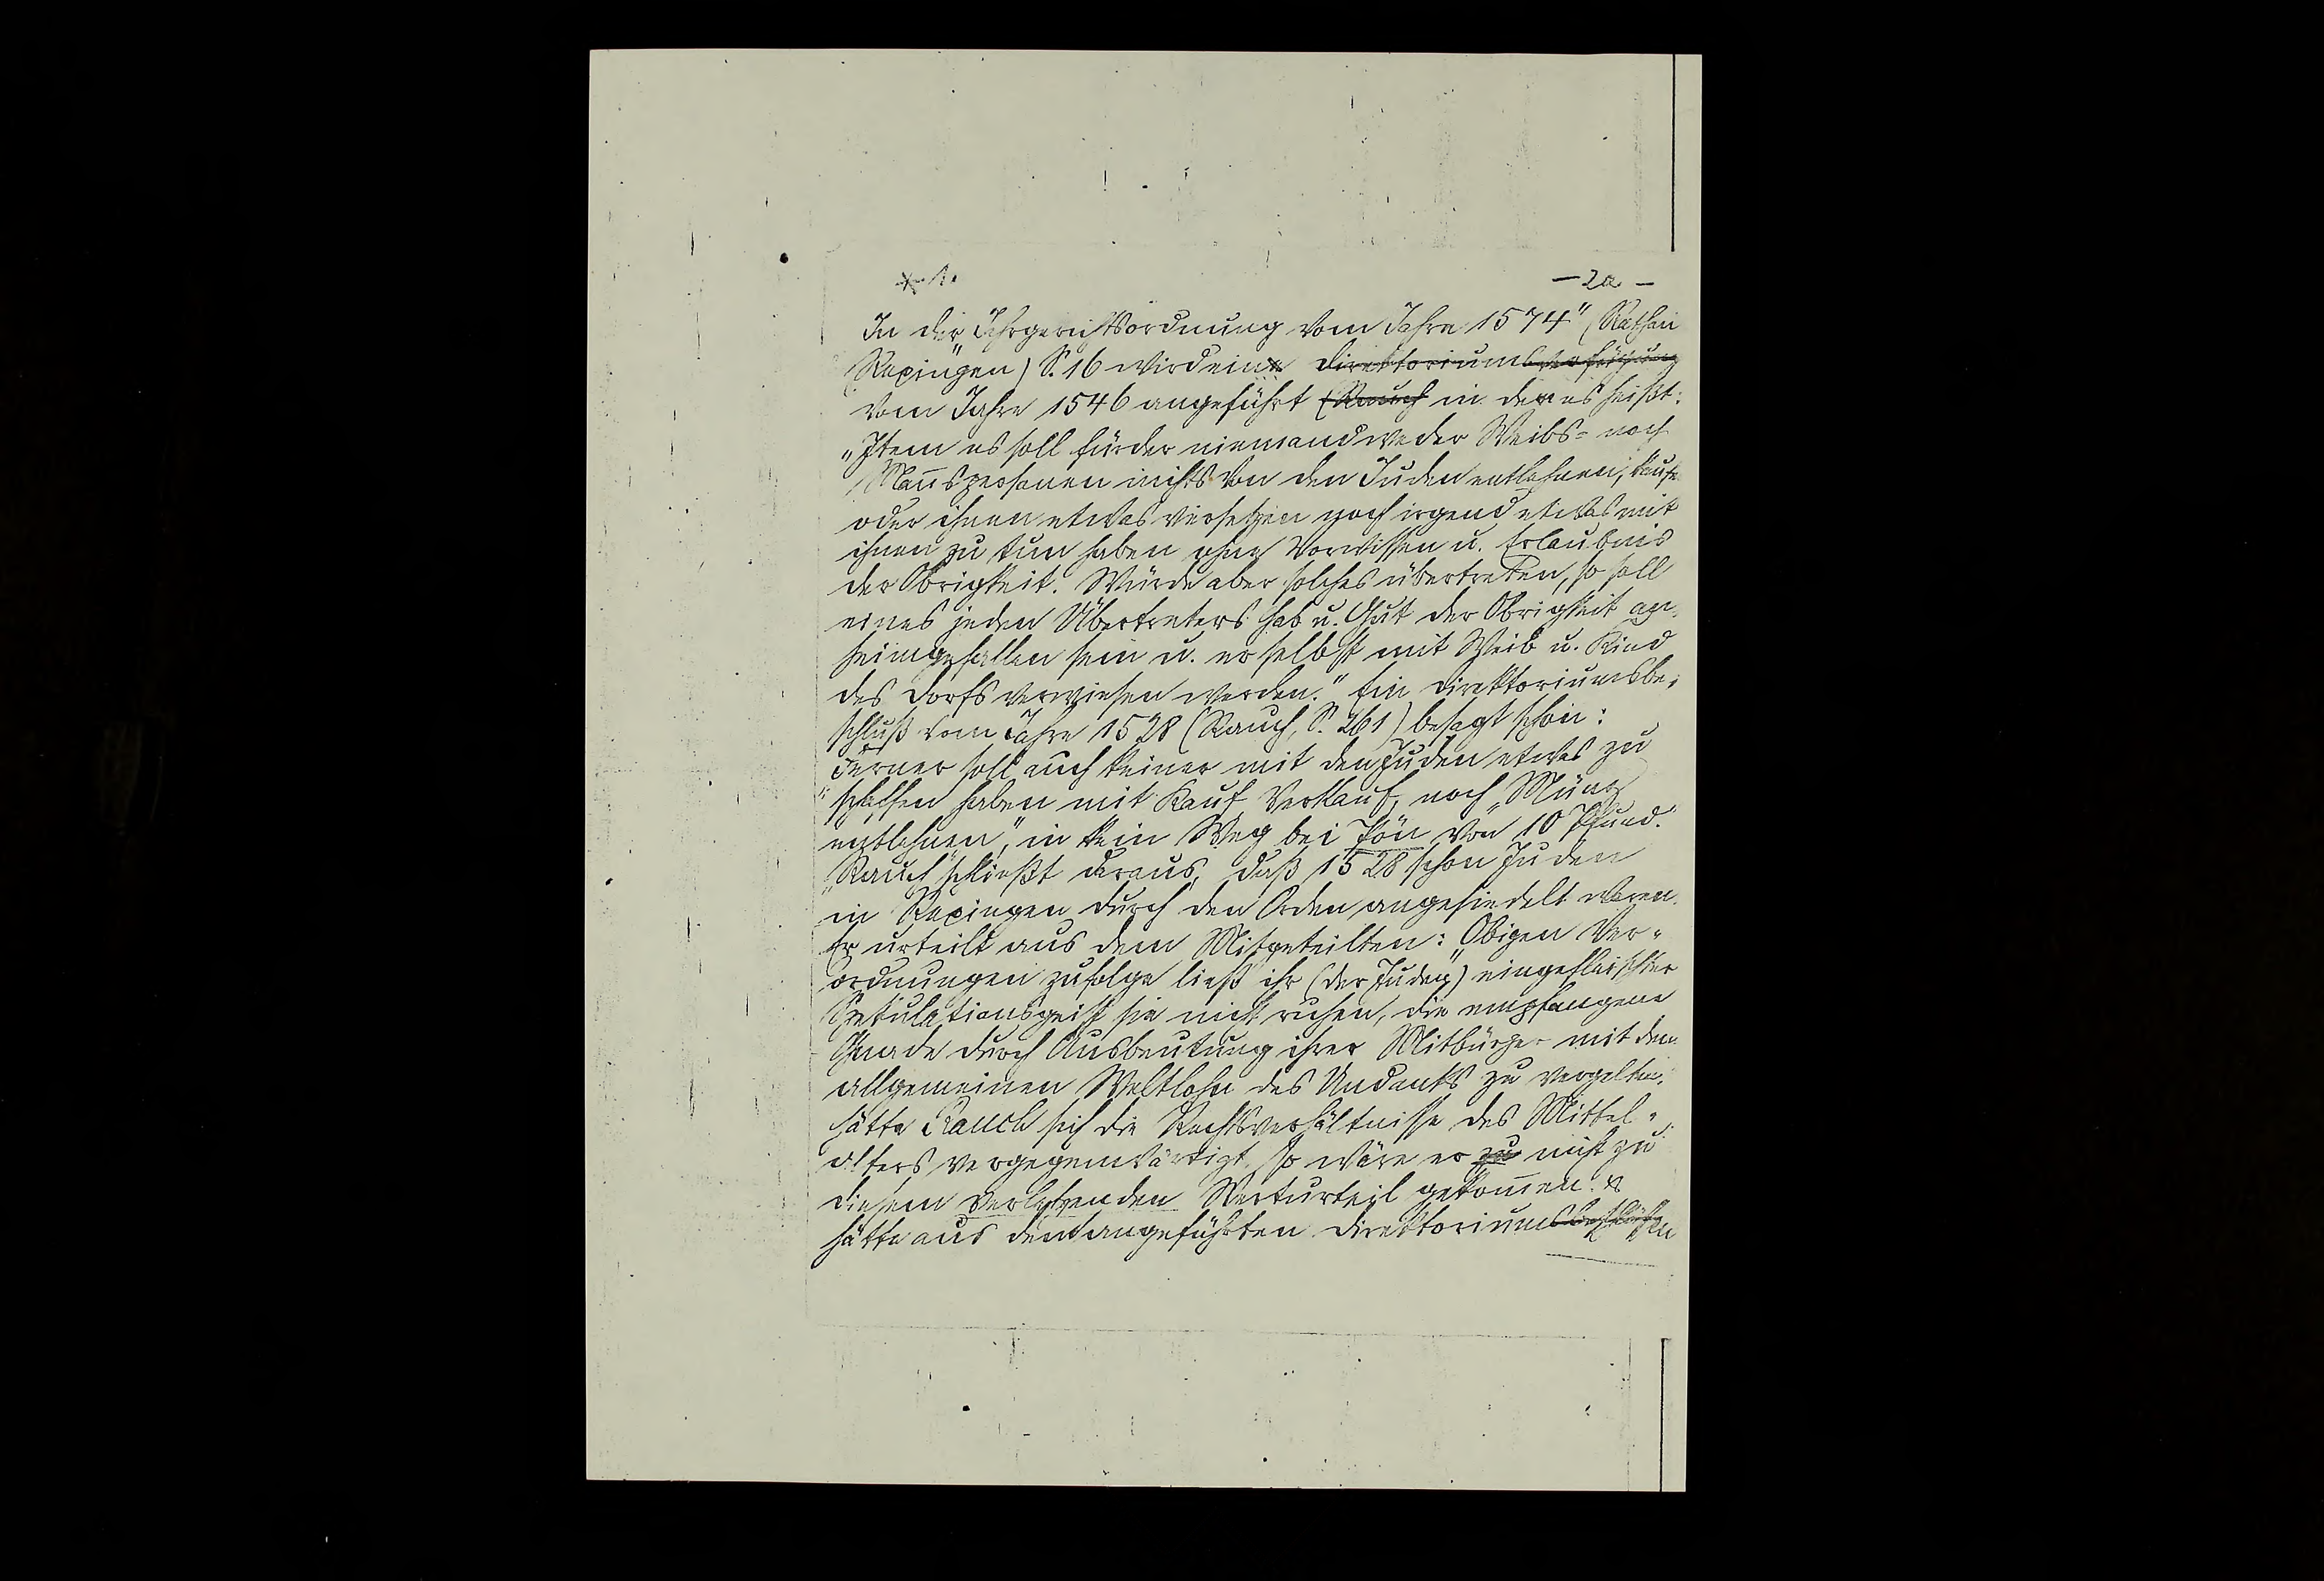 * 1. — 2a —
In der „Jahrgerichtsordnung vom Jahre 1574" (Rathaus
Rexingen) S. 16 wird eine Direktoriumsverfügung
vom Jahre 1546 angeführt (Rauch in der es heißt:
„Item es soll fürder niemand weder Weibs= noch
Mannspersonen nichts von den Juden entlehnen, kaufen
oder ihnen etwas versetzen noch irgend etwas mit
ihnen zu tun haben ohne Vorwissen u. Erlaubnis
der Obrigkeit. Würde aber solches übertreten, so soll
eines jeden Übertreters Hab u. Gut der Obrigkeit an-
heimgefallen sein u. er selbst mit Weib u. Kind
des Dorfs verwiesen werden." Ein Direktoriumsbe-
schluß vom Jahre 1528 (Rauch, S. 261) besagt schon:
„Ferner soll auch keiner mit den Juden etwas zu
schaffen haben mit Kauf Verkauf, noch „Münz
entlehnen", in kein Weg bei Pön von 10 Pfund."
„Rauch" schließt daraus, daß 1528 schon Juden
in Rexingen durch den Orden angesiedelt waren.
Er urteilt aus dem Mitgeteilten: „Obigen Ver-
ordnungen zufolge ließ ihr (der Juden) eingefleischter
Spekulationsgeist sie nicht ruhen, die empfangene
Gnade durch Ausbeutung ihrer Mitbürger mit dem
allgemeinen Weltlohn des Undanks zu vergelten."
Hätte Rauch sich die Rechtsverhältnisse des Mittel-
alters vergegenwärtigt, so wäre er zu nicht zu
diesem verletzenden Werturteil gekommen. Er
hätte aus dem angeführten Direktoriums